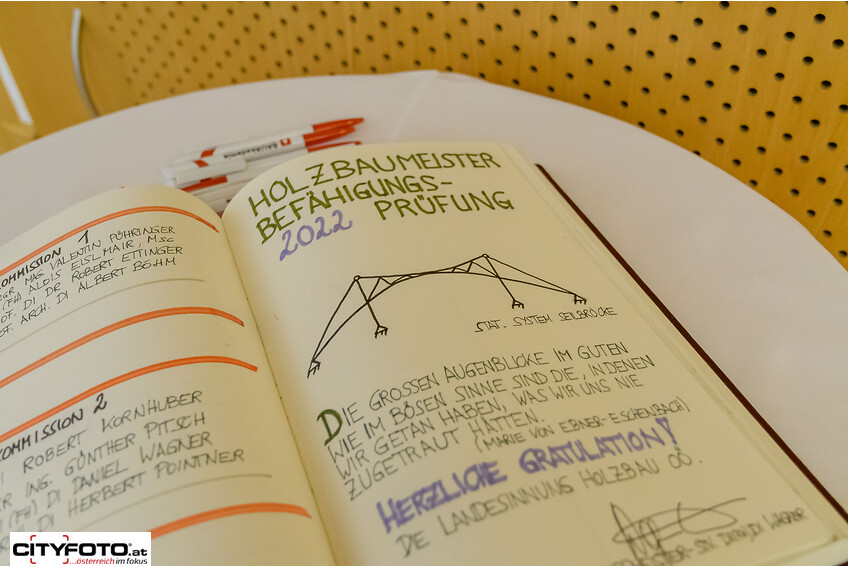 BAUAkademie
KOMMISSION 1
MAG. VALENTIN PÜHRINGER
(FH) ALOIS EISLMAIR, MSc
DI DR ROBERT ETTINGER
ARCH. DI ALBERT BÖHM
KOMMISSION 2
ROBERT KORNHUBER
ING. GÜNTHER PITSCH
(FH) DI DANIEL WAGNER
DI HERBERT POINTNER
HOLZBAUMEISTER
BEFÄHIGUNGS-
PRÜFUNG
2022
STAT. SYSTEM SEILBRÜCKE
DIE GROSSEN AUGENBLICKE IM GUTEN
WIE IM BÖSEN SINNE SIND DIE, IN DENEN
WIR GETAN HABEN, WAS WIR UNS NIE
ZUGETRAUT HÄTTEN.
(MARIE VON EBNER-ESCHENBACH)
HERZLICHE GRATULATION!
DIE LANDESINNUNG HOLZBAU OÖ.
WAGNER
CITYFOTO.at
...österreich im fokus